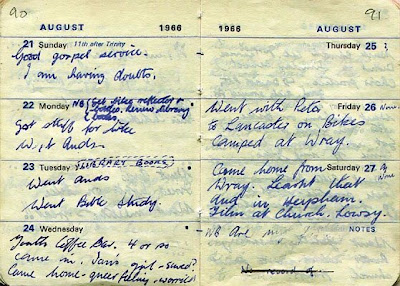 90
AUGUST 1966
21 Sunday 11th after Trinity
Good gospel service.
I am having doubts.
22 Monday NB Get bike reflector &
bodies. Renew library
books.
Got stuff for bike
Went Ands
23 Tuesday LIBRARY BOOKS
Went Ands
Went Bible Study.
24 Wednesday
Youth Coffee Bar. 4 or so
came in. Jan's girl - saved?
Came home - queer feeling, worried
91
1966 AUGUST
Thursday 25
Went with Peter Friday 26
to Lancaster on Bikes
Camped at Wray.
Came home from Saturday 27
Wray. Learnt that
And in Heysham.
Film at Church. Lousy.
NB Are my NOTES
No record of